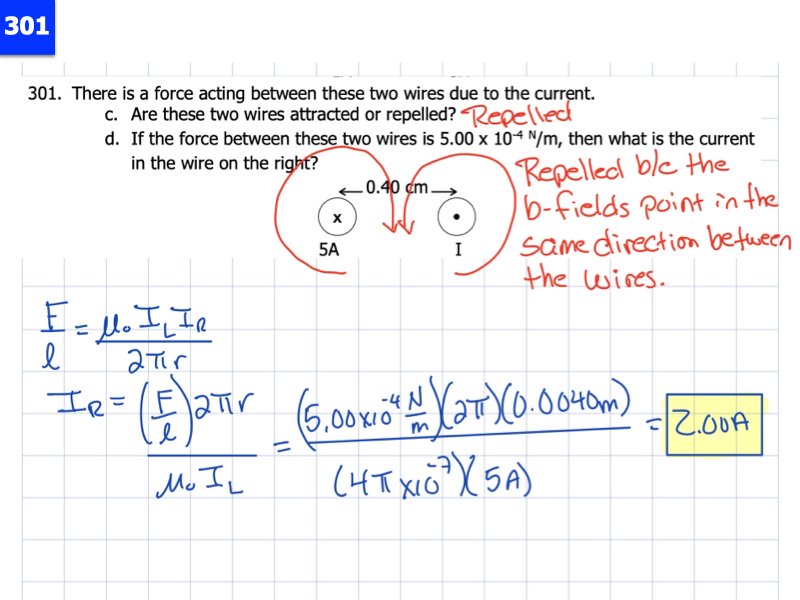 301
301. There is a force acting between these two wires due to the current.
c. Are these two wires attracted or repelled? Repelled
d. If the force between these two wires is 5.00 x 10⁻⁴ N/m, then what is the current
in the wire on the right?
Repelled b/c the
b-fields point in the
same direction between
the wires.
0.40 cm
x
5A I
F/l = μ₀ I_L I_R / 2πr
I_R = (F/l) 2πr / μ₀ I_L = (5.00x10⁻⁴ N/m)(2π)(0.0040m) / (4π x10⁻⁷)(5A) = 2.00A